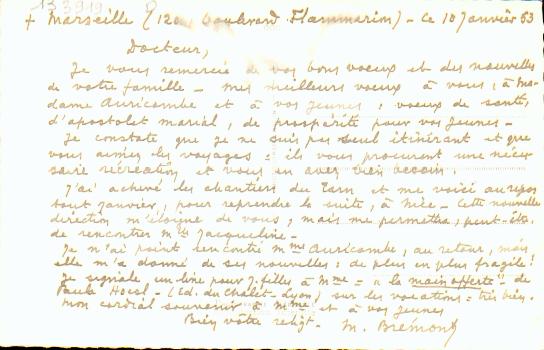 133919
+ Marseille (120 boulevard Flammarion) - Ce 10 Janvier 63
Docteur,
Je vous remercie de vos bons voeux et des nouvelles
de votre famille - mes meilleurs voeux à vous, à Ma-
dame Auricombe et à vos jeunes : voeux de santé,
d'apostolat marial, de prospérité pour vos jeunes -
Je constate que je ne suis pas seul itinérant et que
vous aimez les voyages : ils vous procurent une néces-
saire récréation et vous en avez bien besoin.
J'ai achevé les chantiers du Tarn et me voici au repos
tout Janvier, pour reprendre la suite, à Nice - Cette nouvelle
direction m'éloigne de vous, mais me permettra, peut-être
de rencontrer Mlle Jacqueline -
Je n'ai point rencontré Mme Auricombe, au retour, mais
elle m'a donné de ses nouvelles : de plus en plus fragile !
Je signale un livre pour j. filles à Mme = "la main offerte" de
Paule Hoesl - (Ed. du Chalet - Lyon) sur les vocations = très bien.
Mon cordial souvenir à Mme et à vos jeunes
Bien vôtre religt - M. Brémond